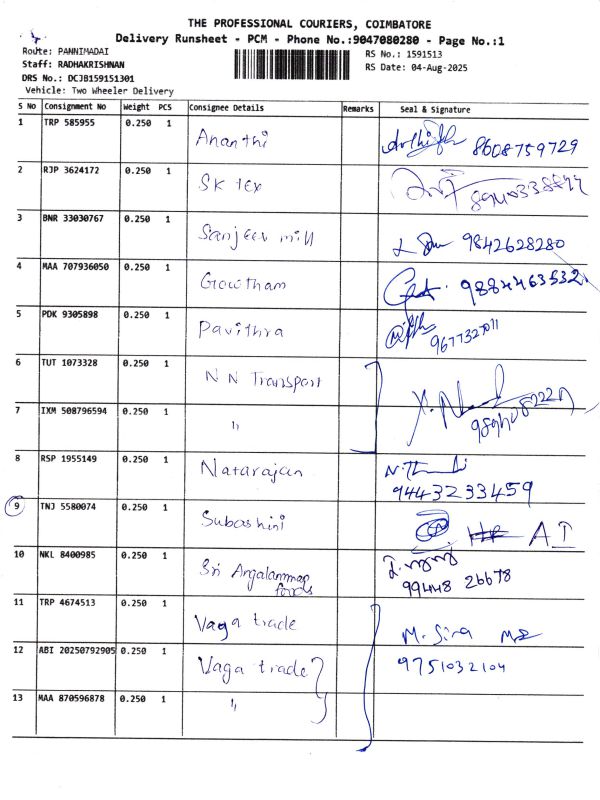 THE PROFESSIONAL COURIERS, COIMBATORE
Delivery Runsheet - PCM - Phone No.:9047080280 - Page No.:1
Route: PANNIMADAI
RS No.: 1591513
Staff: RADHAKRISHNAN
RS Date: 04-Aug-2025
DRS No.: DCJB159151301
Vehicle: Two Wheeler Delivery
S No Consignment No Weight PCS Consignee Details Remarks Seal & Signature
1 TRP 585955 0.250 1 Ananthi 8608759729
2 RJP 3624172 0.250 1 SK tex
3 BNR 33030767 0.250 1 Sanjeev mill 9842628280
4 MAA 707936050 0.250 1 Gowtham 9884463532
5 PDK 9305898 0.250 1 Pavithra 9677327011
6 TUT 1073328 0.250 1 N N Transport
7 IXM 508796594 0.250 1 "
8 RSP 1955149 0.250 1 Natarajan 9443233459
9 TNJ 5580074 0.250 1 Subashini A I
10 NKL 8400985 0.250 1 Sri Angalamman foods 99448 26678
11 TRP 4674513 0.250 1 Vaga trade M. Siva
12 ABI 20250792905 0.250 1 Vaga trade 9751032104
13 MAA 870596878 0.250 1 "